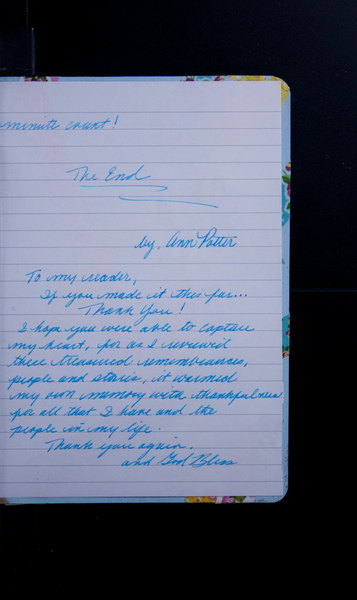 minute count!
The End
by, Ann Potter
To my reader,
If you made it this far...
Thank you!
I hope you were able to capture
my heart, for as I review'd
these treasured remembrances,
people and stories, it warmed
my own memory with thankfulness
for all that I have and the
people in my life.
Thank you again,
and God Bless